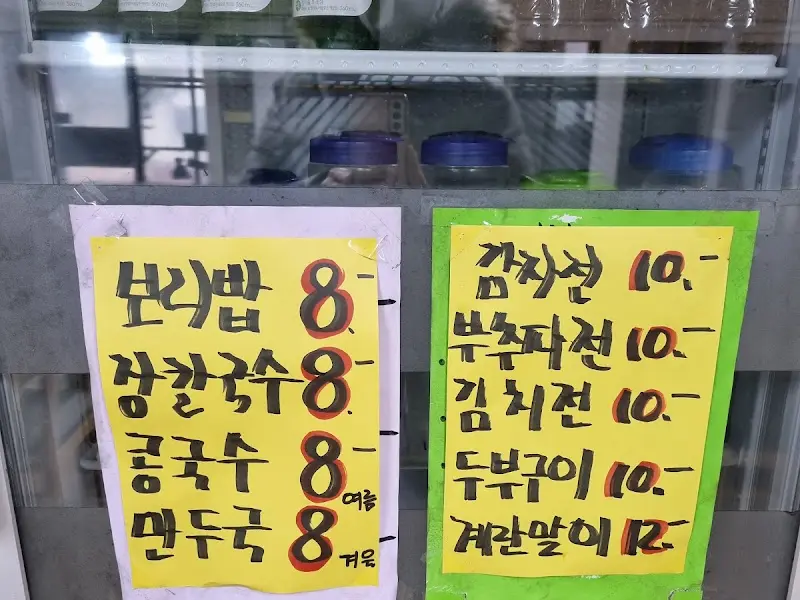 보리밥 8.-
장칼국수 8.-
콩국수 8.- 여름
만두국 8 겨울
감자전 10.-
부추파전 10.-
김치전 10.-
두부구이 10.-
계란말이 12.-